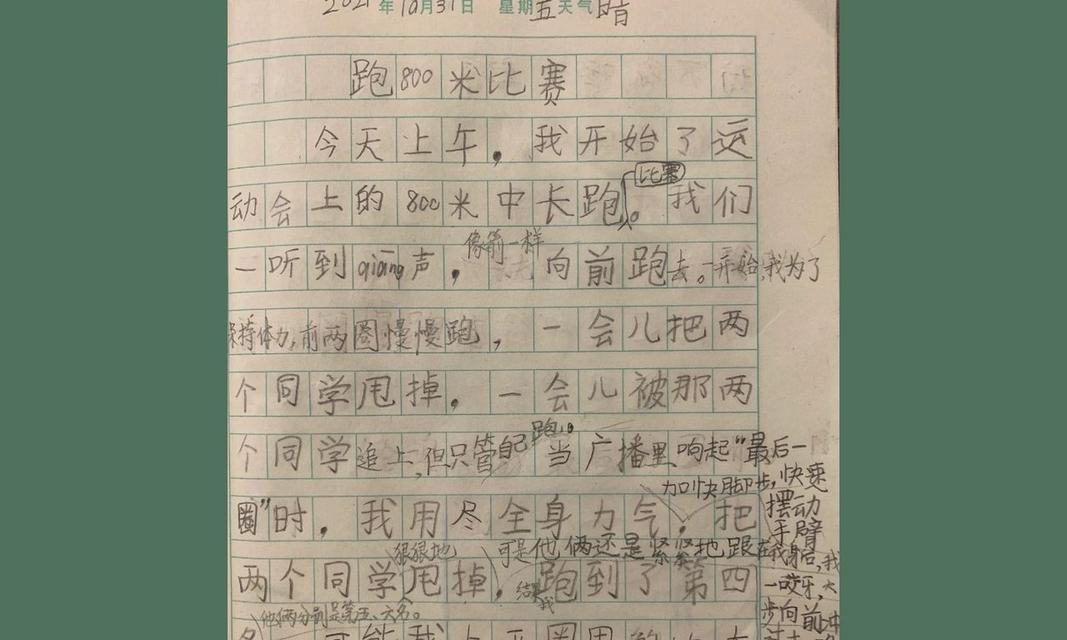 2021年10月31日 星期五天气晴
跑800米比赛
今天上午，我开始了运
比赛
动会上的800米中长跑。我们
像箭一样
一听到qiāng声，向前跑去。一开始，我为了
保持体力，前两圈慢慢跑，一会儿把两
个同学甩掉，一会儿被那两
跑。
个同学追上，但只管自己当广播里响起“最后一
加快脚步，快速
圈”时，我用尽全身力气，把
摆动
手臂
狠狠地 可是他俩还是紧紧地跟在我身后，我
两个同学甩掉，跑到了第四
结果我
一咬牙，大
步向前冲
他俩分别是第五、六名。